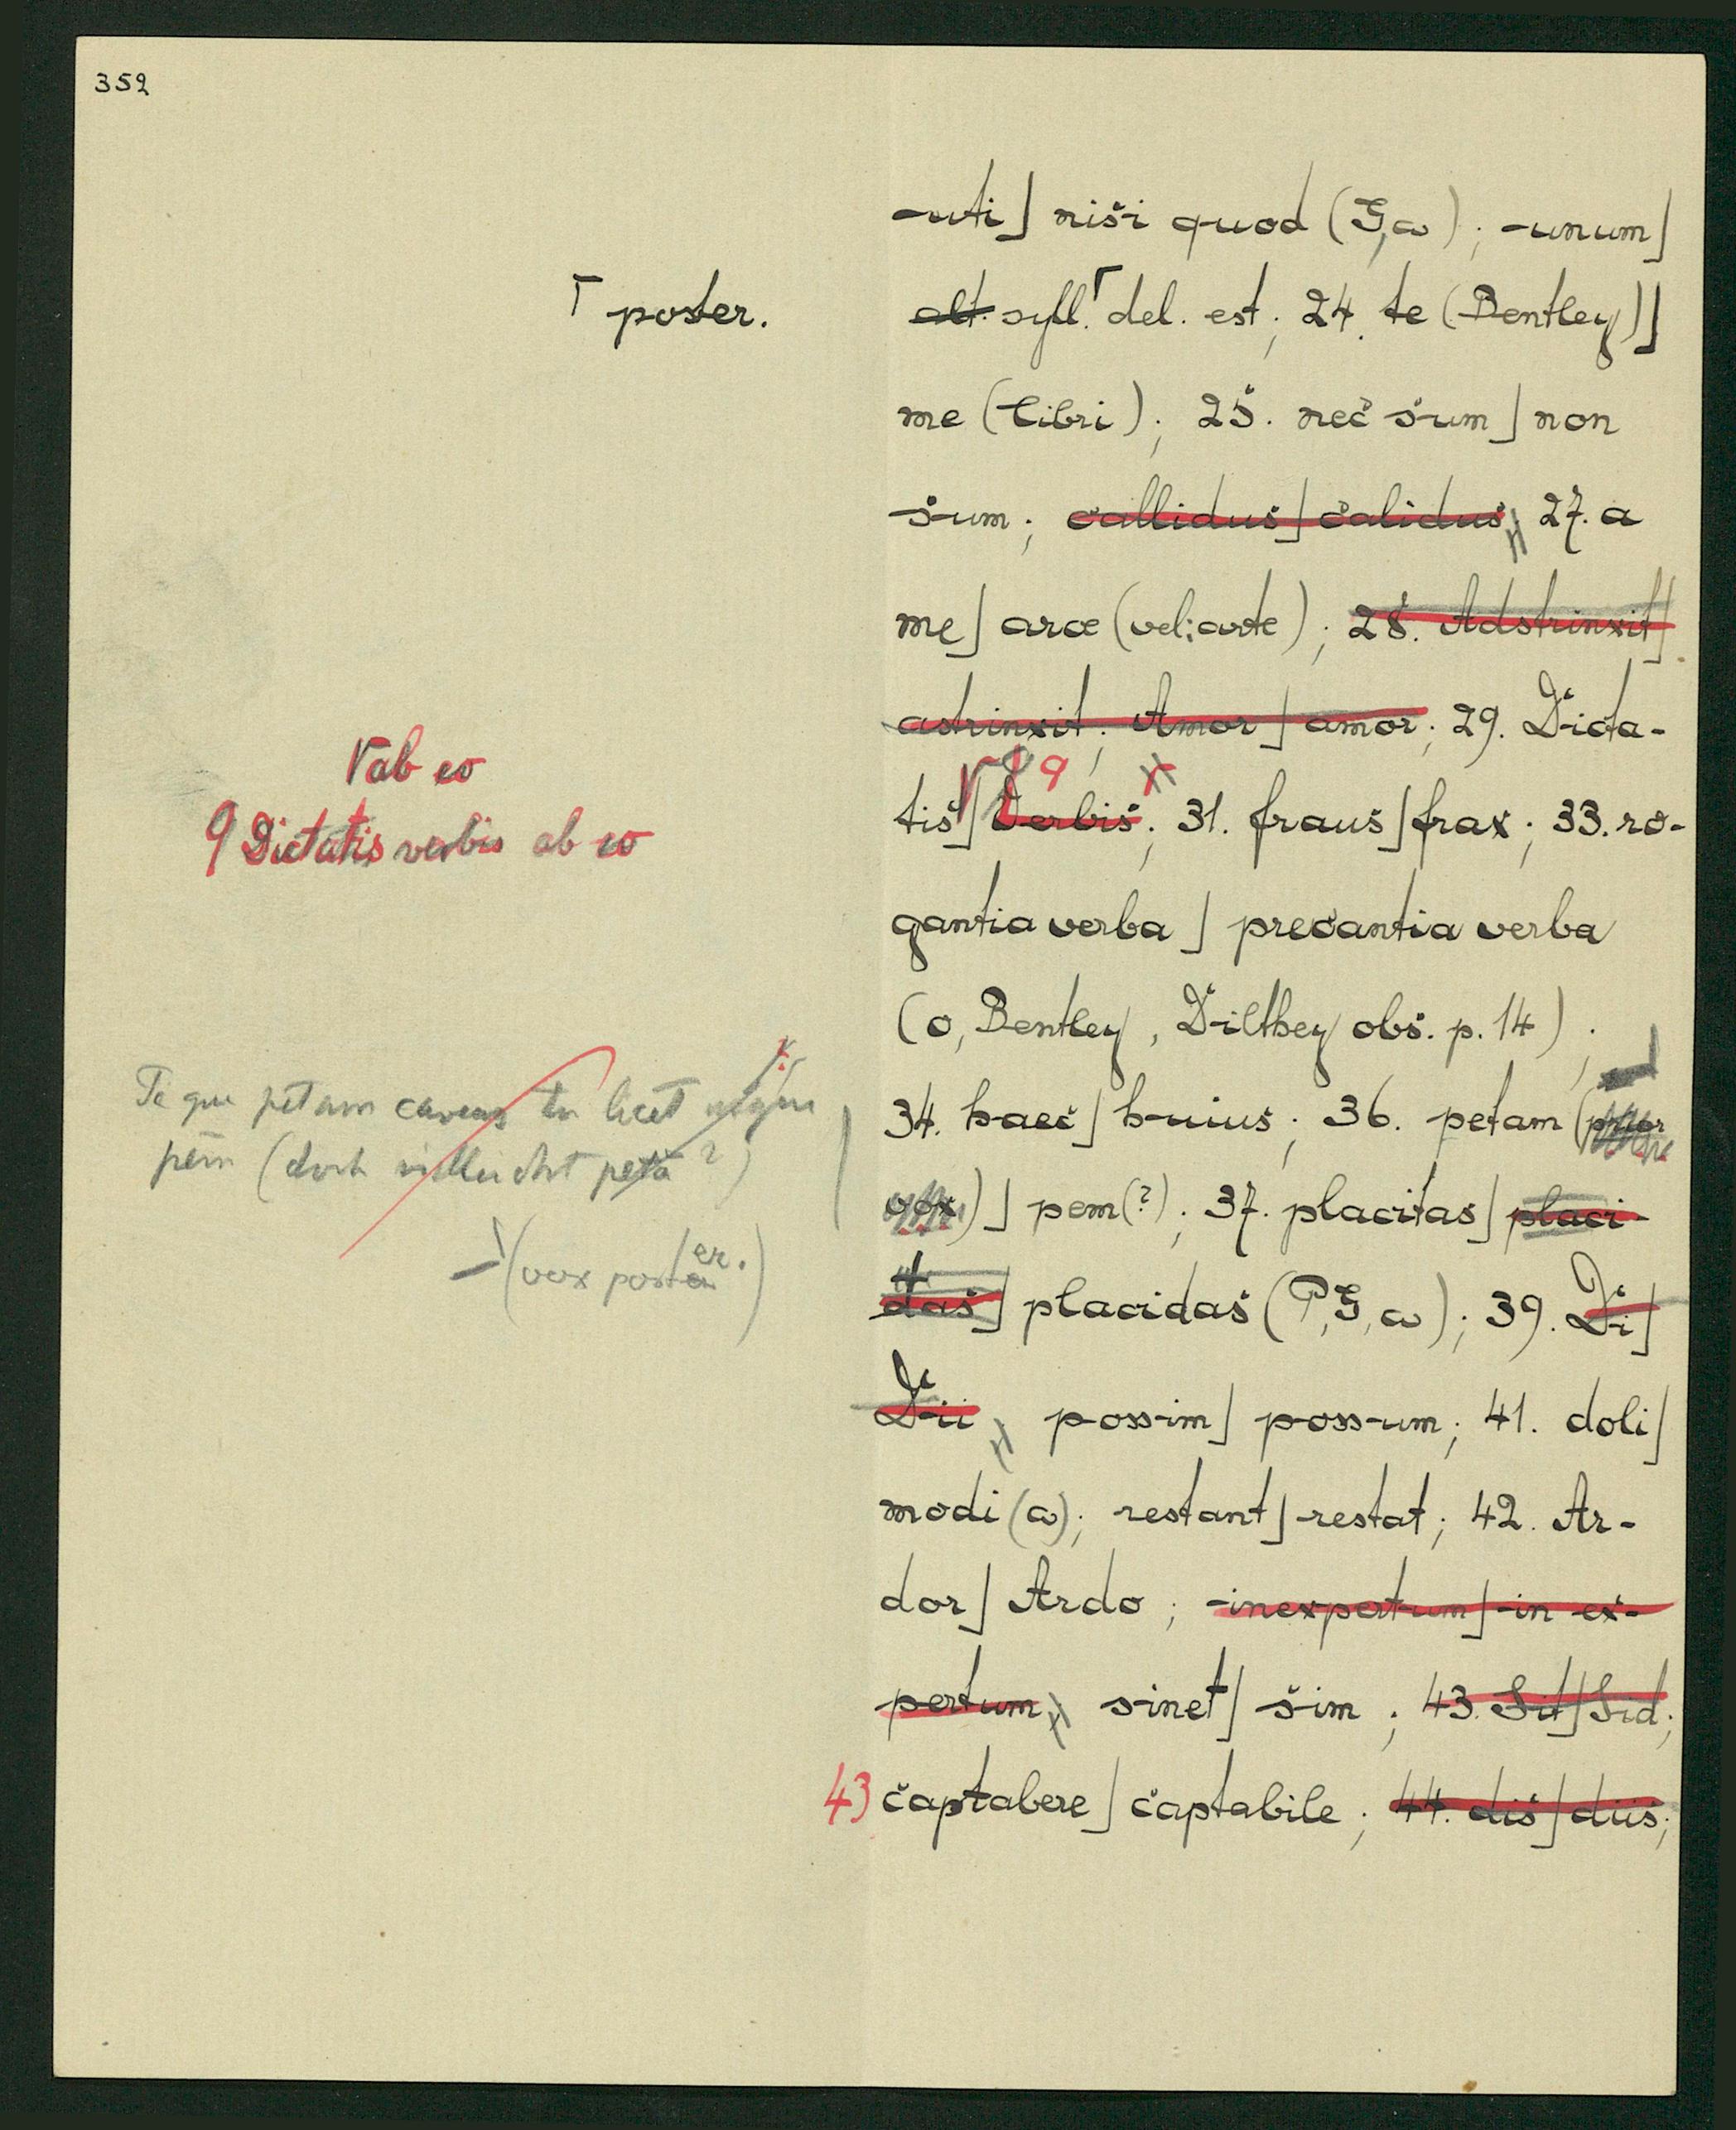 352
uti] nisi quod (G, ω); unum]
⌈ poster.
alt. syll.⌈ del. est; 24. te (Bentley)]
me (libri); 25. nec sum] non
sum; callidus] calidus; 27. a
me] arce (vel: arte); 28. Adstrinxit]
astrinxit; Amor] amor; 29. Dicta-
⌈ab eo
tis] Verbis; 31. fraus] frax; 33. ro-
9 Dictatis verbis ab eo
gantia verba] precantia verba
(o, Bentley, Dilthey obs. p. 14);
Te que petam caveas tu licet
34. haec] huius; 36. petam (prior
pem (doch vielleicht peta?)
vox)] pem(?); 37. placitas] placi-
(vox poster.)
tas] placidas (P, G, ω); 39. Di]
Dii, possim] possum; 41. doli]
modi (ω); restant] restat; 42. Ar-
dor] Ardo; inexpertum] in ex-
pertum, sinet] sim; 43. Sit] Sid;
43 captabere] captabile; 44. dis] diis;